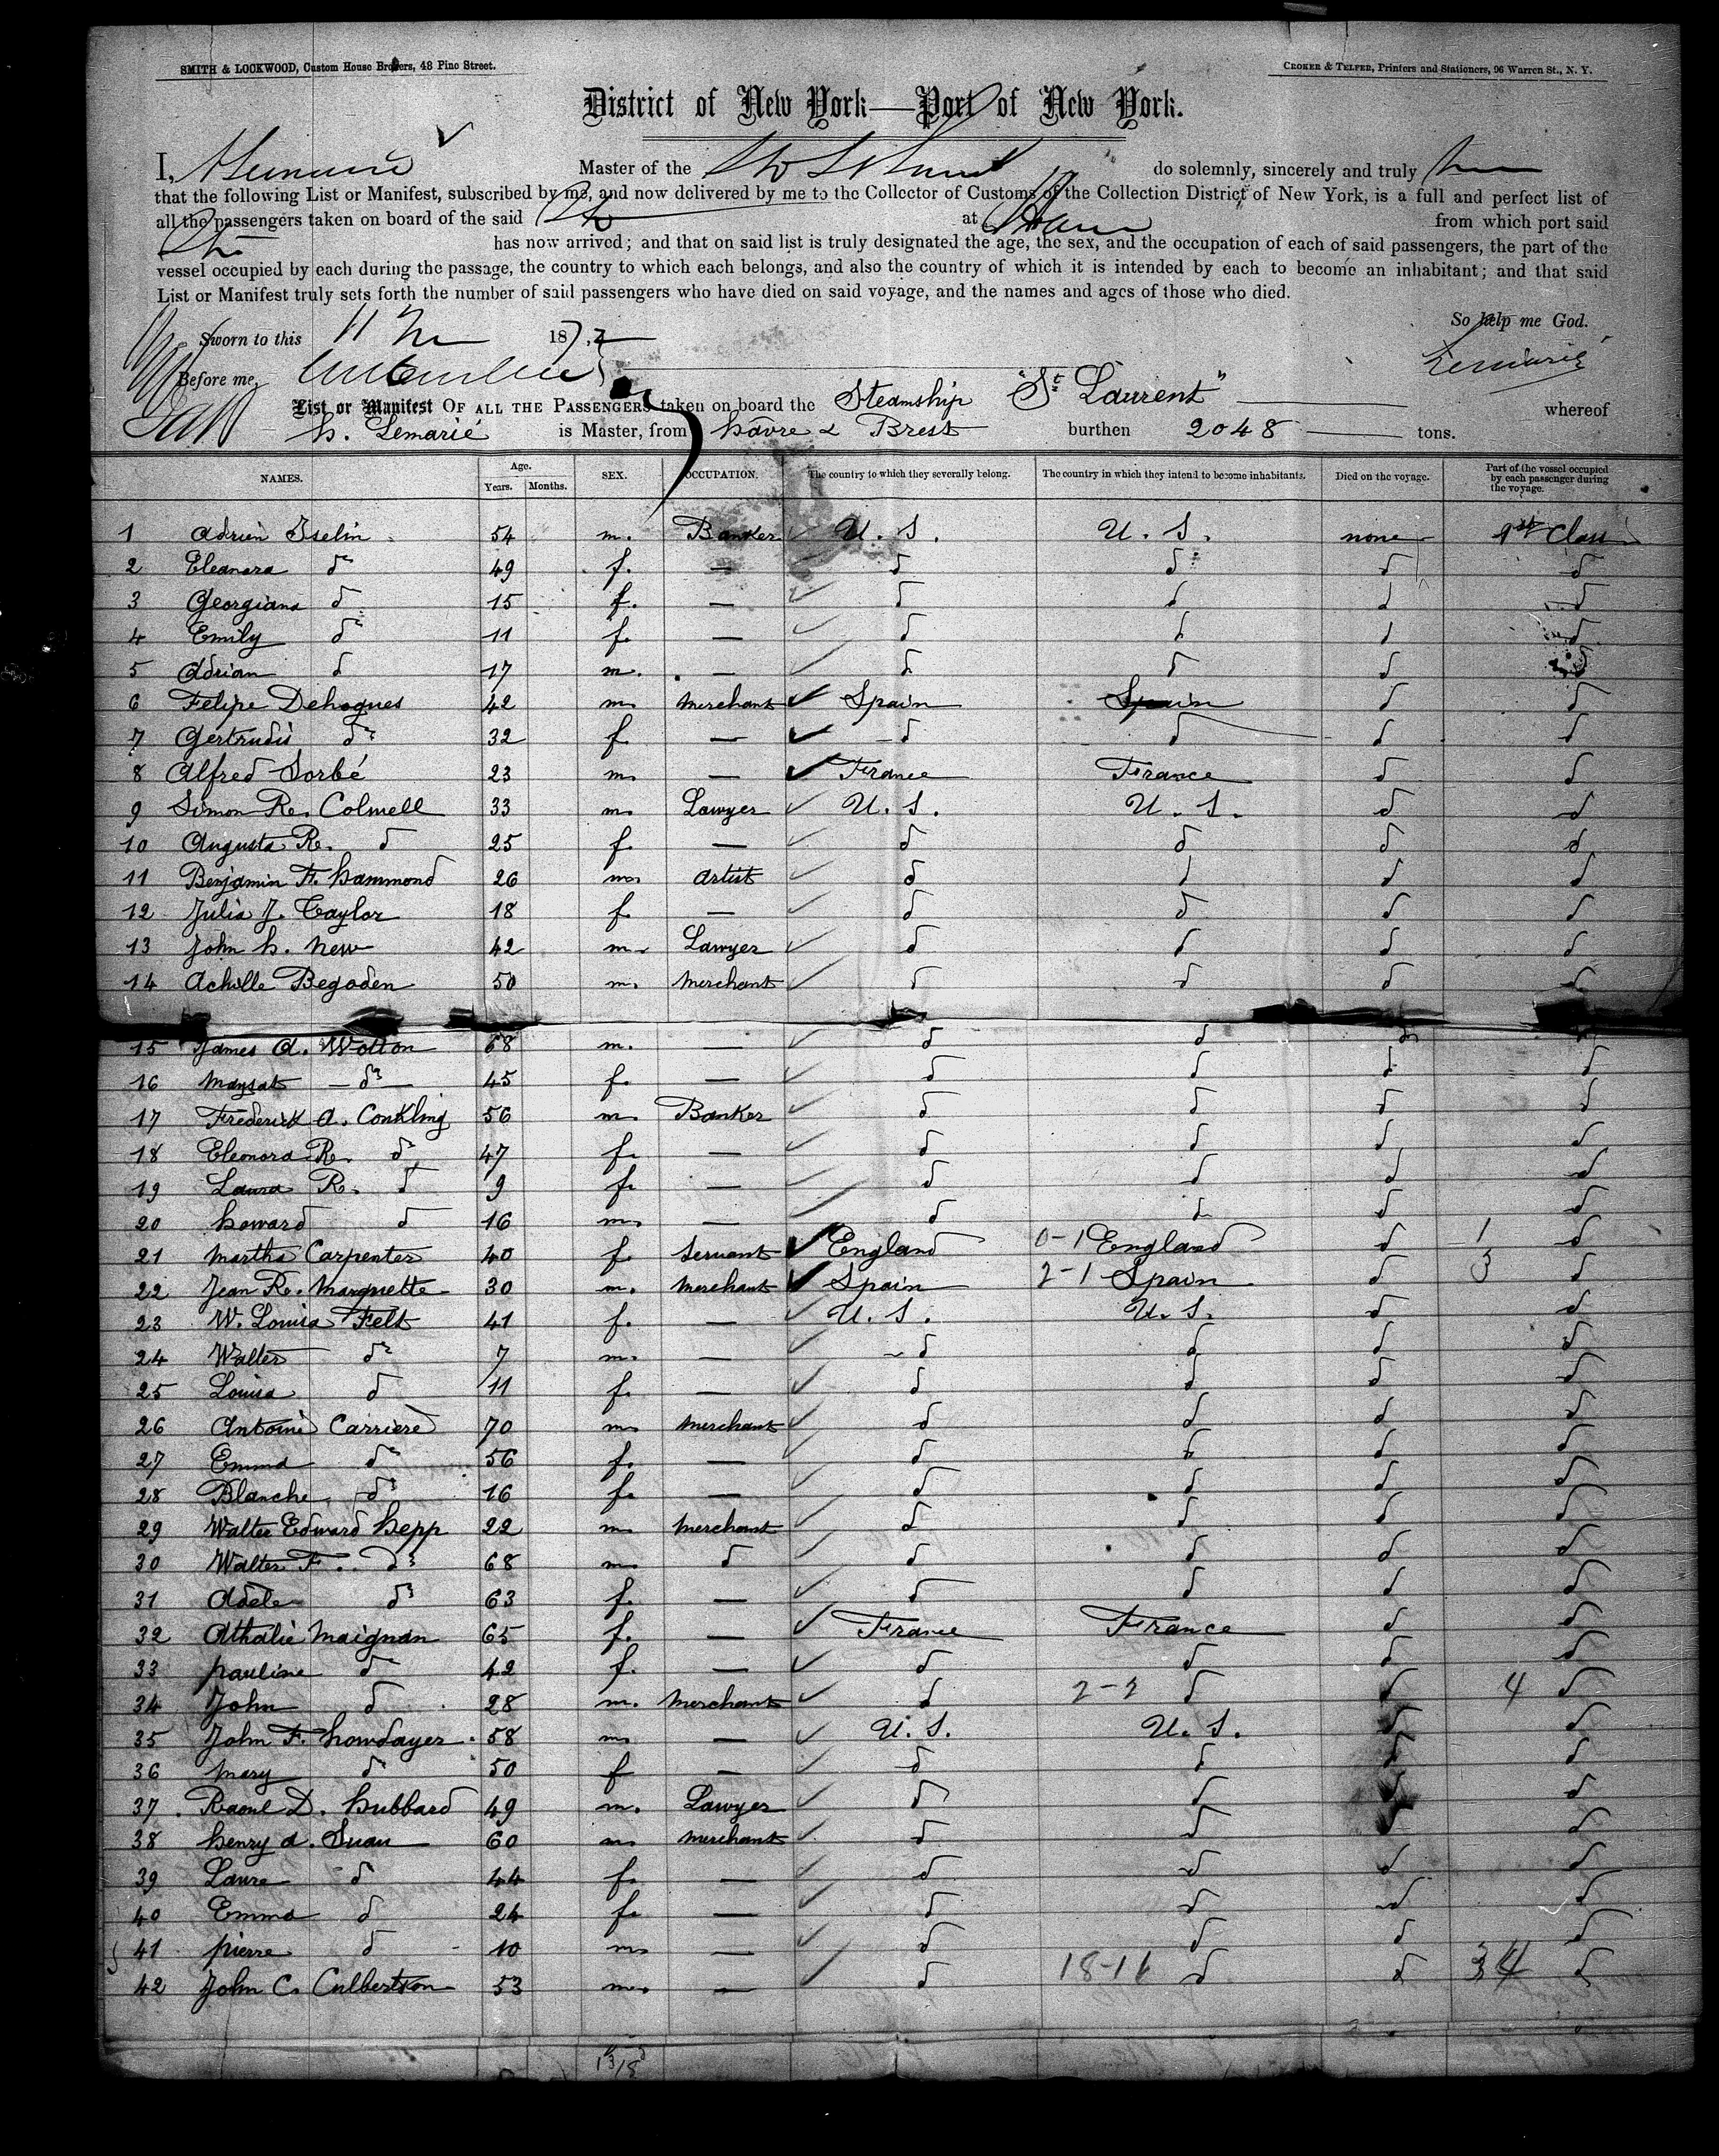 SMITH & LOCKWOOD, Custom House Brokers, 48 Pine Street.
CROKER & TELFER, Printers and Stationers, 96 Warren St., N. Y.
District of New York—Port of New York.
I, Lemarié Master of the do solemnly, sincerely and truly
that the following List or Manifest, subscribed by me, and now delivered by me to the Collector of Customs of the Collection District of New York, is a full and perfect list of
all the passengers taken on board of the said at Havre from which port said
has now arrived; and that on said list is truly designated the age, the sex, and the occupation of each of said passengers, the part of the
vessel occupied by each during the passage, the country to which each belongs, and also the country of which it is intended by each to become an inhabitant; and that said
List or Manifest truly sets forth the number of said passengers who have died on said voyage, and the names and ages of those who died.
So help me God.
Sworn to this 11 187
Lemarié
Before me,
List or Manifest OF ALL THE PASSENGERS taken on board the Steamship "St Laurent" whereof
h. Lemarié is Master, from havre & Brest burthen 2048 tons.
NAMES. Age. Years. Months. SEX. OCCUPATION. The country to which they severally belong. The country in which they intend to become inhabitants. Died on the voyage. Part of the vessel occupied by each passenger during the voyage.
1 Adrien Iselin 54 m. Banker U. S. U. S. none 1st Class
2 Eleanora do 49 f. — d d d d
3 Georgiana d 15 f. — d d d d
4 Emily do 11 f. — d d d d
5 Adrian d 17 m. — d d d d
6 Felipe Dehogues 42 m. merchant Spain Spain d d
7 Gertrudis do 32 f — d d d d
8 Alfred Sorbé 23 m. — France France d d
9 Simon R. Colwell 33 m. Lawyer U. S. U. S. d d
10 Augusta R. d 25 f. — d d d d
11 Benjamin F. hammond 26 m. artist d d d d
12 Julia J. Taylor 18 f. — d d d d
13 John h. new 42 m. Lawyer d d d d
14 Achille Begoden 50 m. merchant d d d d
15 James A. Wotton 68 m. — d d d d
16 do 45 f. — d d d d
17 Frederick A. Conkling 56 m. Banker d d d d
18 Eleonora R. do 47 f. — d d d d
19 Laura R. d 9 f. — d d d d
20 howard d 16 m. — d d d d
21 Martha Carpenter 40 f. servant England 0-1 England d 1 d
22 Jean R. Marquette 30 m. merchant Spain 2-1 Spain d 3 d
23 W. Louisa Felt 41 f. — U. S. U. S. d d
24 Walter do 7 m. — d d d d
25 Louisa d 11 f. — d d d d
26 Antoine Carriere 70 m. merchant d d d d
27 Emma do 56 f. — d d d d
28 Blanche do 16 f. — d d d d
29 Walter Edward hepp 22 m. merchant d d d d
30 Walter F. do 68 m. d d d d d
31 Adele do 63 f. — d d d d
32 Athalie Maignan 65 f. — France France d d
33 pauline d 42 f. — d d d d
34 John d 28 m. merchant d 2-2 d d 4 d
35 John F. 58 m. — U. S. U. S. d d
36 mary do 50 f — d d d d
37 Raoul D. hubbard 49 m. Lawyer d d d d
38 henry A. 60 m merchant d d d d
39 Laure d 44 f. — d d d d
40 Emma d 24 f. — d d d d
41 pierre d 10 m. — d d d d
42 John C. Culbertson 53 m. — d 18-16 d d 34 d